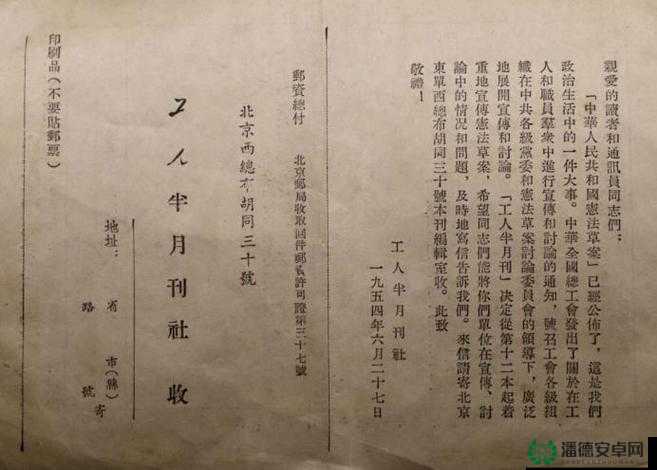 親愛的讀者和通訊員同志們：
「中華人民共和國憲法草案」已經公佈了，這是我們
政治生活中的一件大事。中華全國總工會發出了關於在工
人和職員羣衆中進行宣傳和討論的通知，號召工會各級組
織在中共各級黨委和憲法草案討論委員會的領導下，廣泛
地展開宣傳和討論。「工人半月刊」決定從第十二本起着
重地宣傳憲法草案，希望同志們能將你們單位在宣傳、討
論中的情況和問題，及時地寫信告訴我們。來信請寄北京
東單西總布胡同三十號本刊編輯室收。此致
敬禮！
工人半月刊社
一九五四年六月二十七日
郵資總付　北京郵局收取回件郵資許可證第三十七號
北京西總布胡同三十號
工人半月刊社　收
地址：　省　市(縣)
路　號　寄
印刷品(不要貼郵票)
潘德安卓网